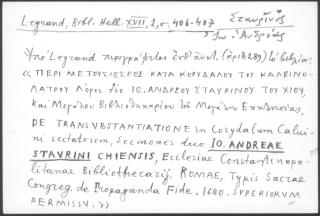 Legrand, Bibl. Hell. XVII, 2, σ. 406-407 Σταυρῖνος
Ἰω. Ἀνδρέας
Ὑπὸ Legrand περιγράφεται ἐνθ' ἀνωτ. (ἀριθ 289) τὸ βιβλίον:
"ΠΕΡΙ ΜΕΤΟΥΣΙΩΣΕΩΣ ΚΑΤΑ ΚΟΡΥΔΑΛΟΥ ΤΟΥ ΚΑΛΒΙΝΟ-
ΛΑΤΡΟΥ Λόγοι δύο ΙΩ. ΑΝΔΡΕΟΥ ΣΤΑΥΡΙΝΟΥ ΤΟΥ ΧΙΟΥ,
καὶ Μεγάλου Βιβλιοθηκαρίου τῆς Μεγάλης Ἐκκλησίας,
DE TRANSVBSTANTIATIONE in Corydalum Calui-
ni sectatorem, Sermones duo IO. ANDREAE
STAVRINI CHIENSIS, Ecclesiae Constantinopo-
litanae Bibliothecarij. ROMAE, Typis Sacrae
Congreg. de Propaganda Fide. 1640. SVPERIORVM
PERMISSV. "